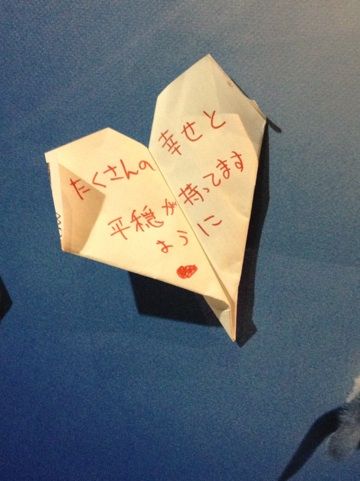 たくさんの幸せと
平穏が持ってます
ように